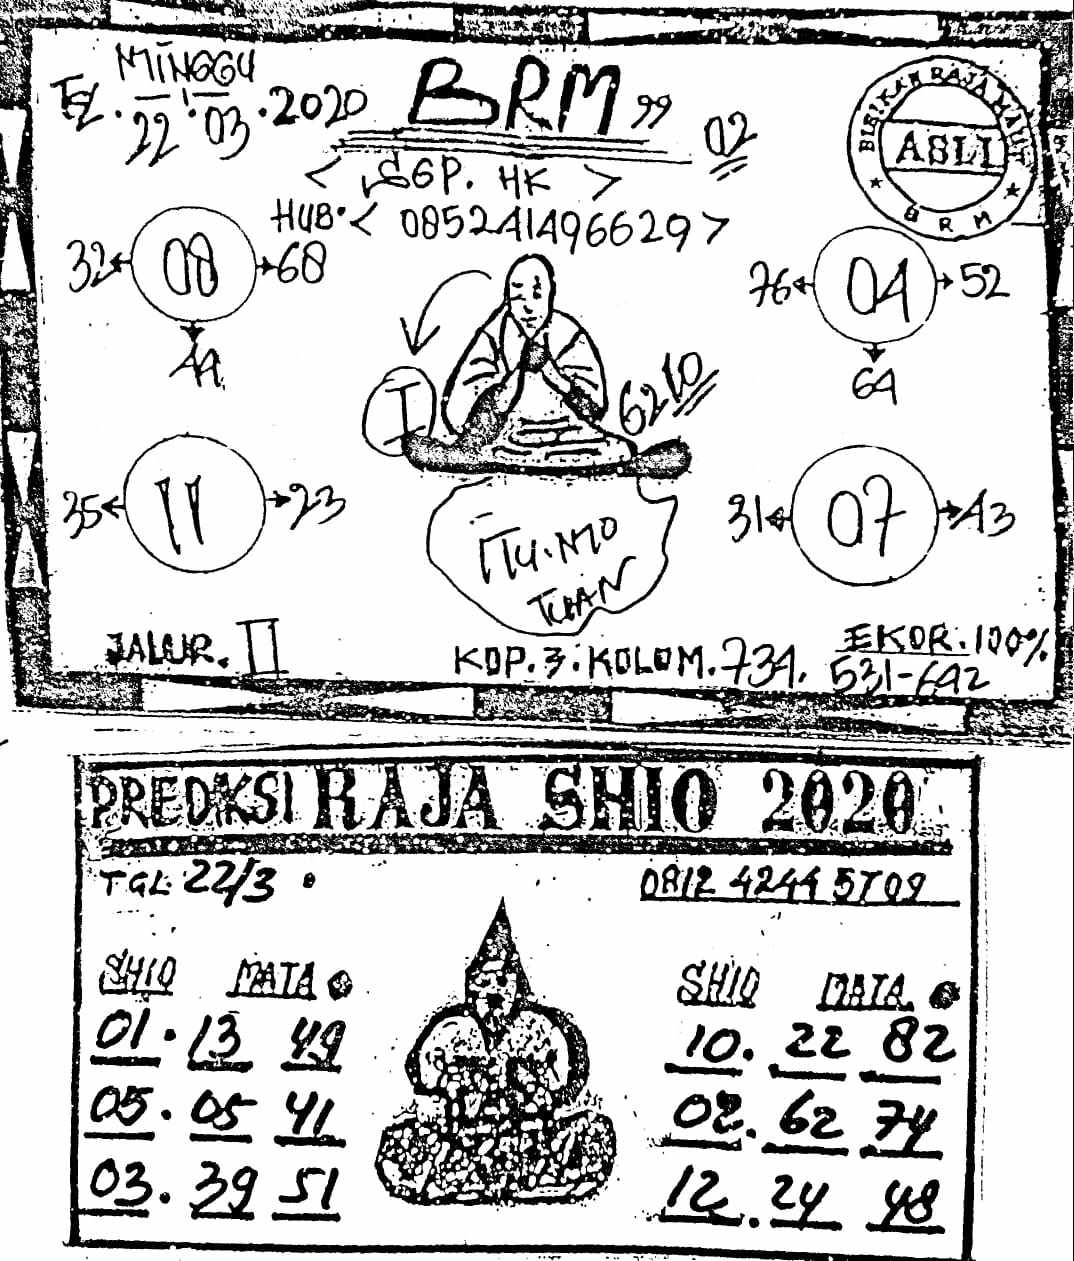 MINGGU
TGL. 22.03.2020
BRM"
02
BISIKAN RAJA MAUT
ASLI
BRM
< SGP. HK >
HUB. < 085241496629 >
32 08 68
44
76 04 52
64
I
6210
35 11 23
31 07 43
JALUR. II
KOP. 3. KOLOM. 734.
EKOR. 100%
531-642
PREDIKSI RAJA SHIO 2020
TGL 22/3
0812 4244 5709
SHIO MATA
SHIO MATA
01. 13 49
10. 22 82
05. 05 41
02. 62 74
03. 39 51
12. 24 48